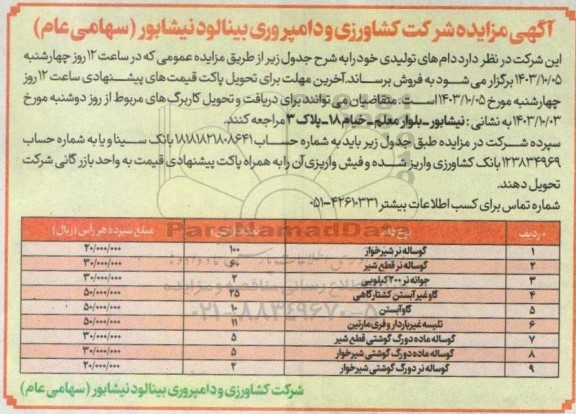 آگهی مزایده شرکت کشاورزی و دامپروری بینالود نیشابور (سهامی عام)
این شرکت در نظر دارد دام های تولیدی خود را به شرح جدول زیر از طریق مزایده عمومی که در ساعت ۱۲ روز چهارشنبه
۱۴۰۳/۱۰/۰۵ برگزار می شود به فروش برساند. آخرین مهلت برای تحویل پاکت قیمت های پیشنهادی ساعت ۱۲ روز
چهارشنبه مورخ ۱۴۰۳/۱۰/۰۵ است. متقاضیان می توانند برای دریافت و تحویل کاربرگ های مربوط از روز دوشنبه مورخ
۱۴۰۳/۱۰/۰۳ به نشانی : نیشابور - بلوار معلم - خیام ۱۸ - پلاک ۳ مراجعه کنند.
سپرده شرکت در مزایده طبق جدول زیر باید به شماره حساب ۱۸۱۸۱۸۲۱۸۰۸۶۴۱ بانک سینا و یا به شماره حساب
۱۲۳۸۳۴۹۶۹ بانک کشاورزی واریز شده و فیش واریزی آن را به همراه پاکت پیشنهادی قیمت به واحد بازرگانی شرکت
تحویل دهند.
شماره تماس برای کسب اطلاعات بیشتر ۴۲۶۱۰۳۳۱-۰۵۱
ردیف نوع دام تعداد مبلغ سپرده هر راس (ریال)
۱ گوساله نر شیرخوار ۱۰۰ ۲۰/۰۰۰/۰۰۰
۲ گوساله نر قطع شیر ۶۰ ۳۰/۰۰۰/۰۰۰
۳ جوانه نر ۲۰۰ کیلویی ۲ ۳۰/۰۰۰/۰۰۰
۴ گاو غیر آبستن کشتارگاهی ۲۵ ۵۰/۰۰۰/۰۰۰
۵ گاو آبستن ۱۰ ۵۰/۰۰۰/۰۰۰
۶ تلیسه غیر باردار و فری مارتین ۱۱ ۵۰/۰۰۰/۰۰۰
۷ گوساله ماده دورگ گوشتی قطع شیر ۵ ۳۰/۰۰۰/۰۰۰
۸ گوساله ماده دورگ گوشتی شیرخوار ۵ ۳۰/۰۰۰/۰۰۰
۹ گوساله نر دورگ گوشتی شیرخوار ۲ ۲۰/۰۰۰/۰۰۰
شرکت کشاورزی و دامپروری بینالود نیشابور (سهامی عام)